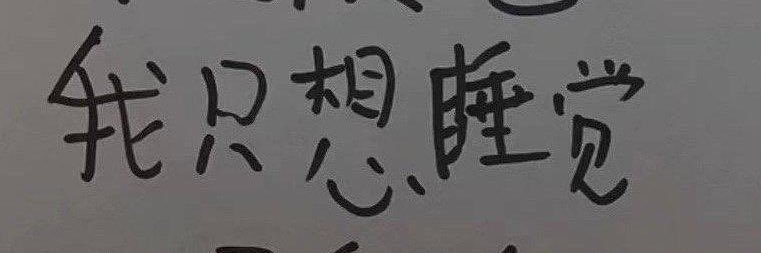 我只想睡觉